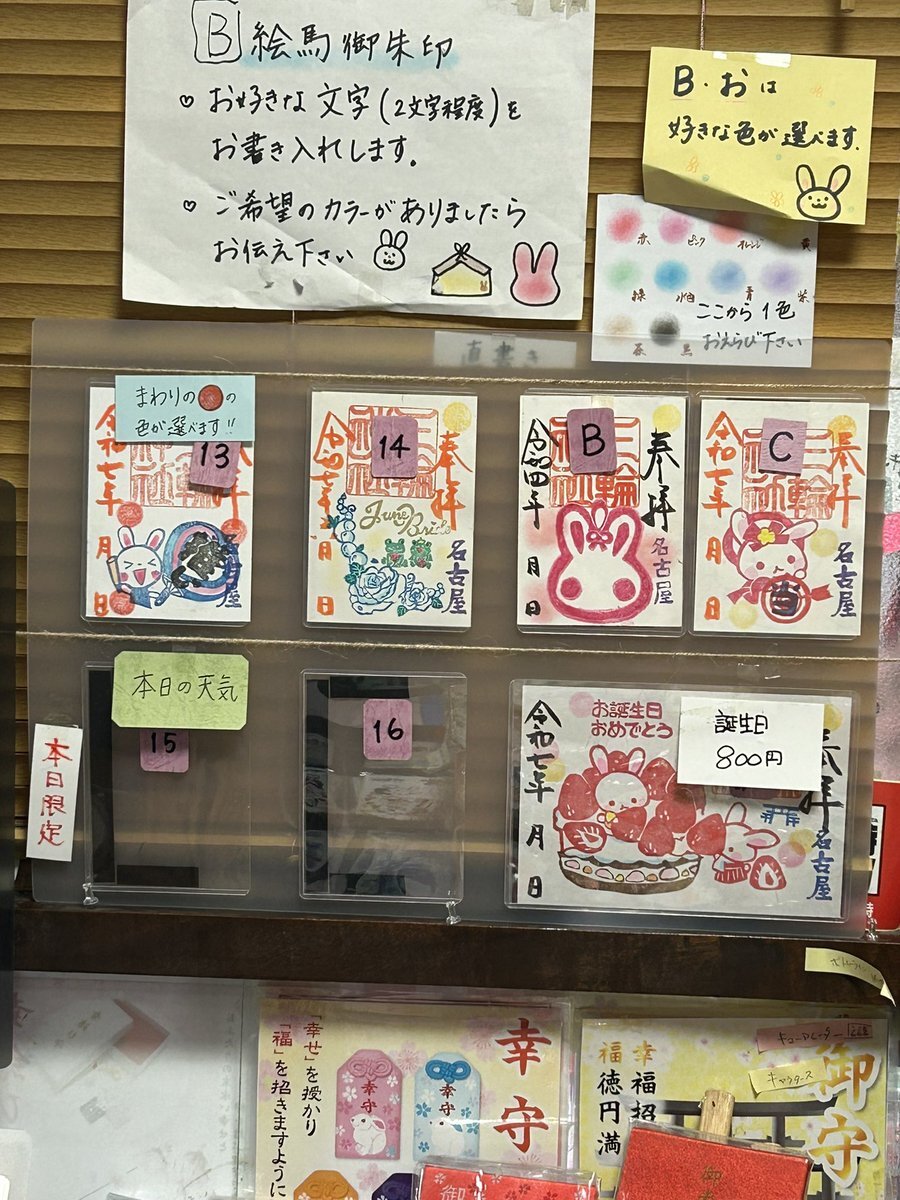 B 絵馬御朱印
♡ お好きな文字(2文字程度)を
お書き入れします。
♡ ご希望のカラーがありましたら
お伝え下さい
B・おは
好きな色が選べます.
赤 ピンク オレンジ 黄
緑 水色 青 紫
茶 黒
ここから1色
おえらび下さい
直書き
まわりの●の
色が選べます!!
13
令和七年 月 日
名古屋
14
奉拝
令和七年 月 日
June Bride
名古屋
B
奉拝
三輪神社
令和四年 月 日
名古屋
C
奉拝
三輪神社
令和七年 月 日
名古屋
本日限定
本日の天気
15
16
お誕生日
おめでとう
誕生日
800円
奉拝
令和七年 月 日
名古屋
幸守
「幸せ」を授かり
「福」を招きますように
幸守
幸守
御守
幸福招
福徳円満
キャラクターズ